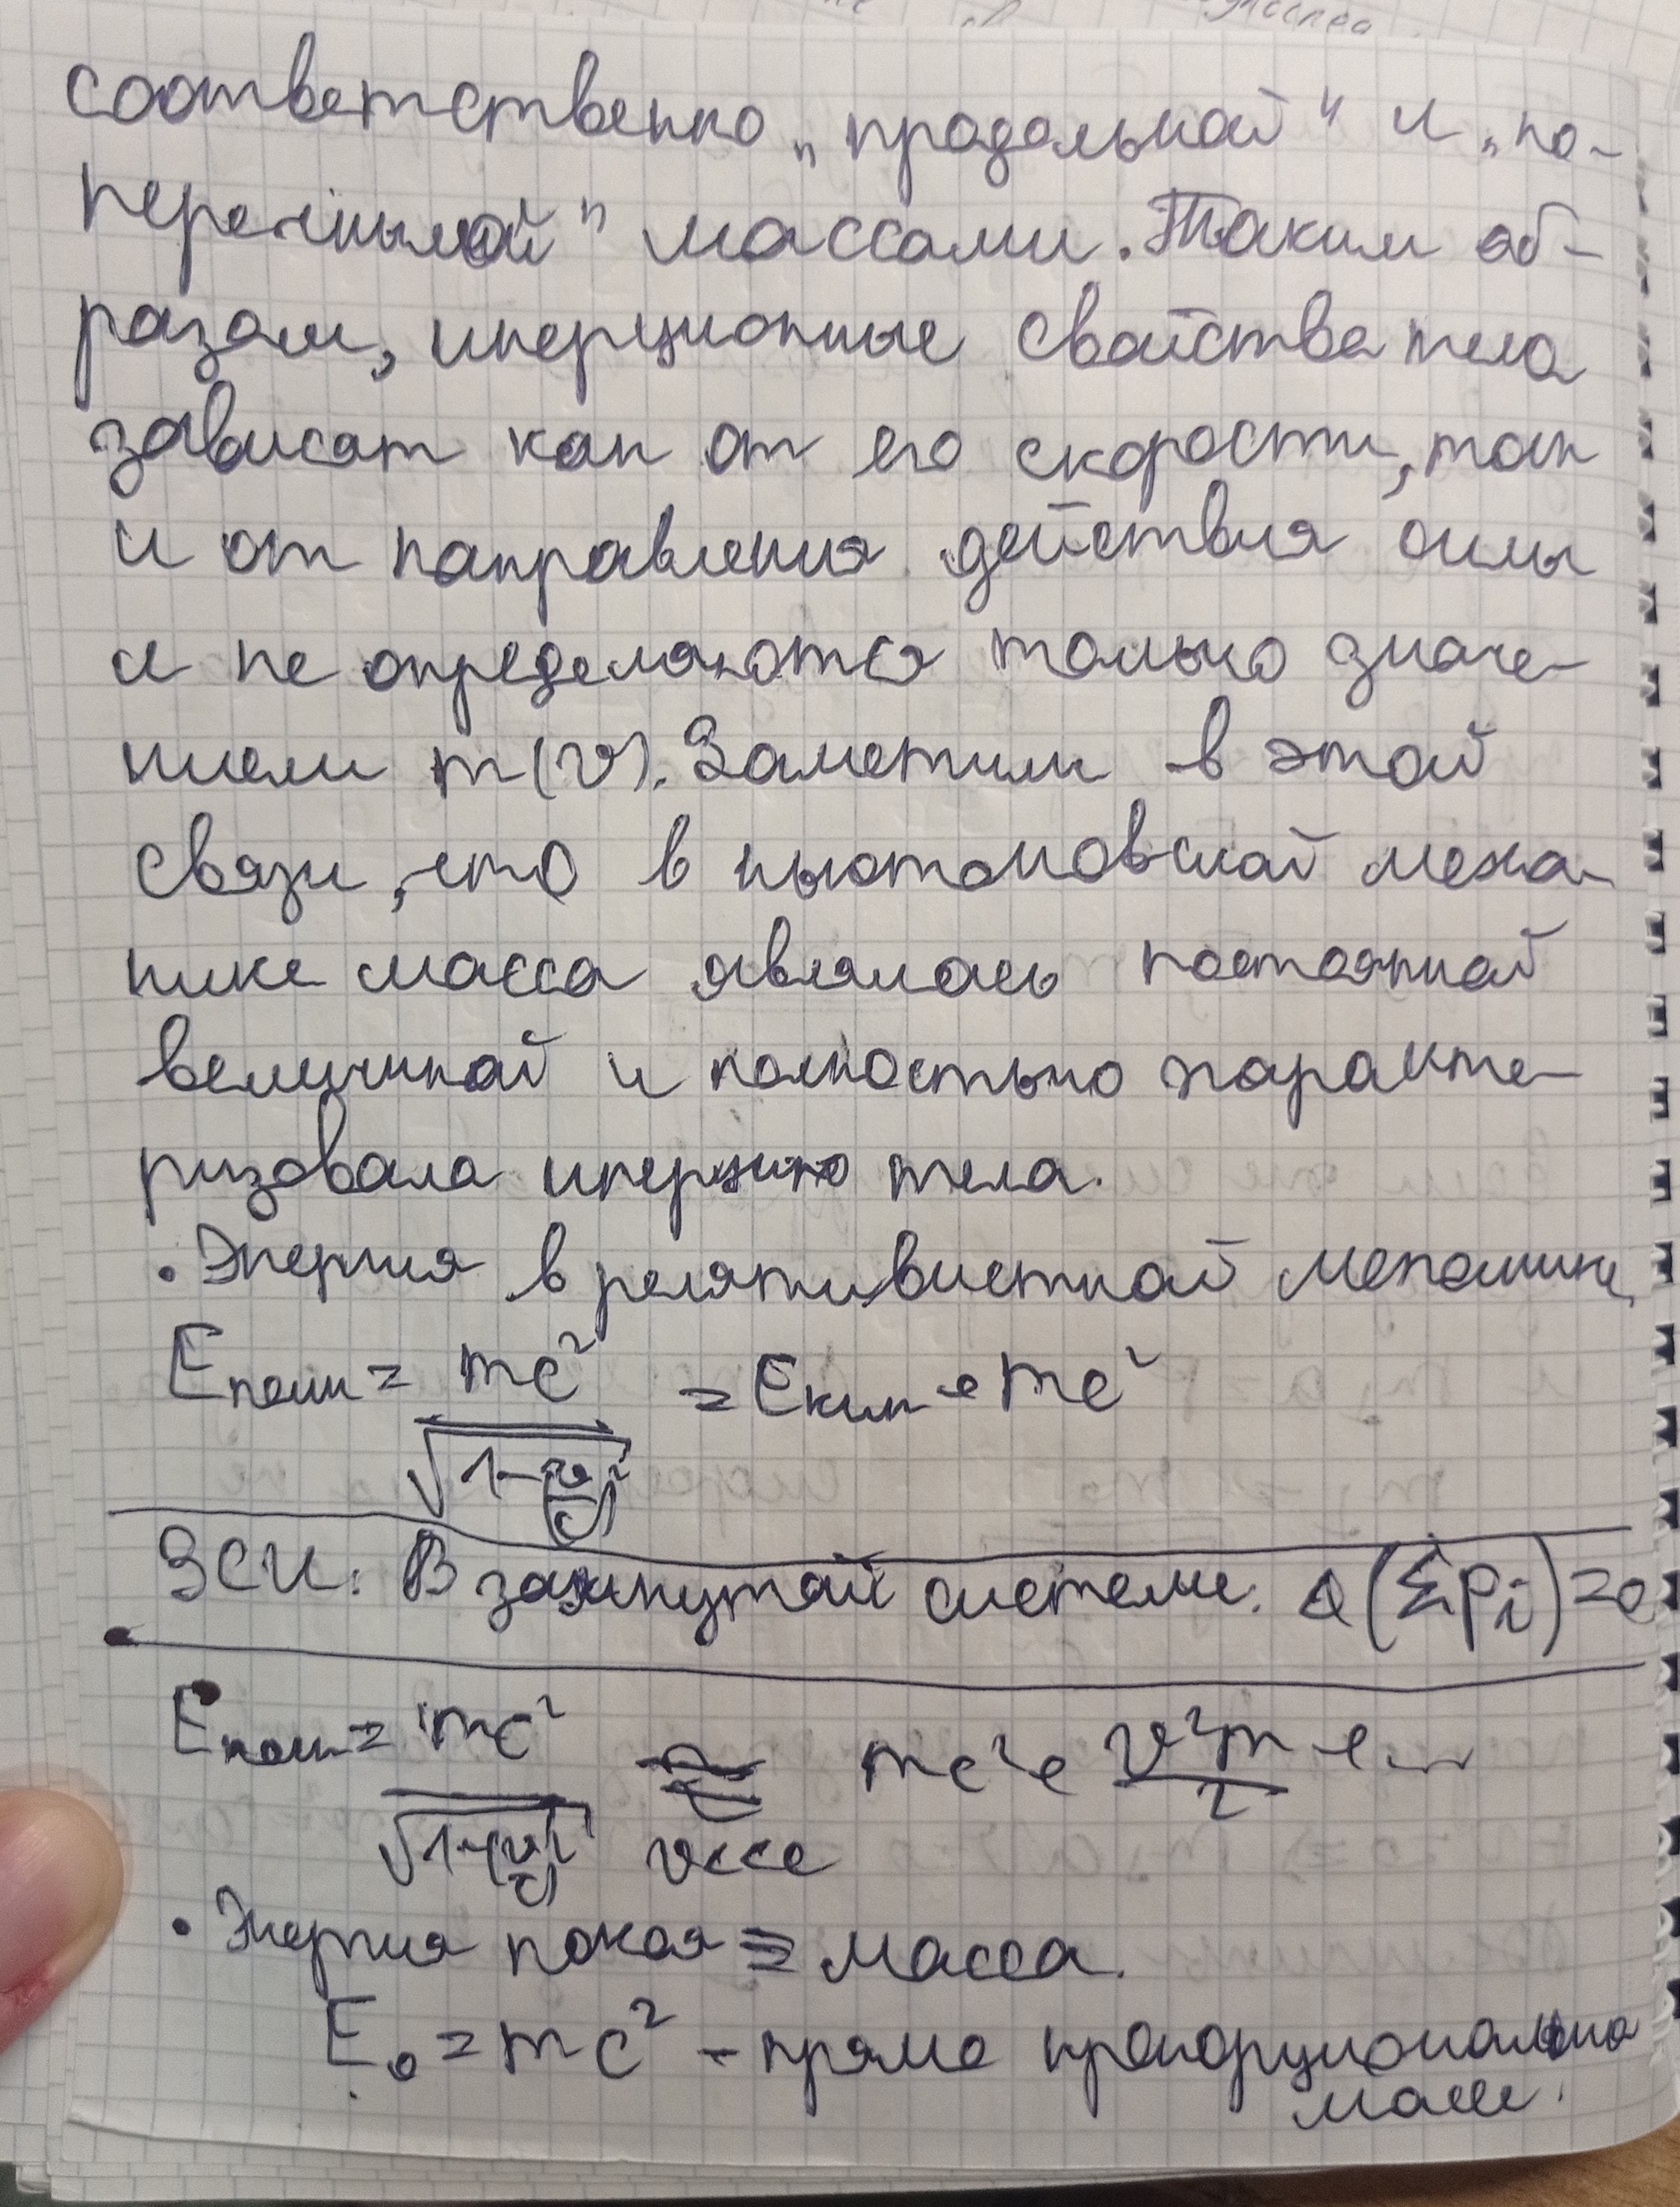 соответственно „продольной" и „по-
перечнымой" массами. Таким об-
разом, инерционные свойства тела
зависят как от его скорости, так
и от направления действия силы
и не определяются только значе-
нием m(v). Заметим в этой
связи, что в ньютоновской меха-
нике масса являлась постоянной
величиной и полностью характе-
ризовала инерцию тела.
• Энергия в релятивистской механике
Eполн = mc² / √(1-(v/c)²) = Eкин + mc²
ЗСИ: В замкнутой системе: Δ(Σpi)=0
Eполн = mc² / √(1-(v/c)²) ≈ mc² + v²m/2 + ...
v<<c
• Энергия покоя ≡ масса.
E₀ = mc² - прямо пропорциональна
массе.